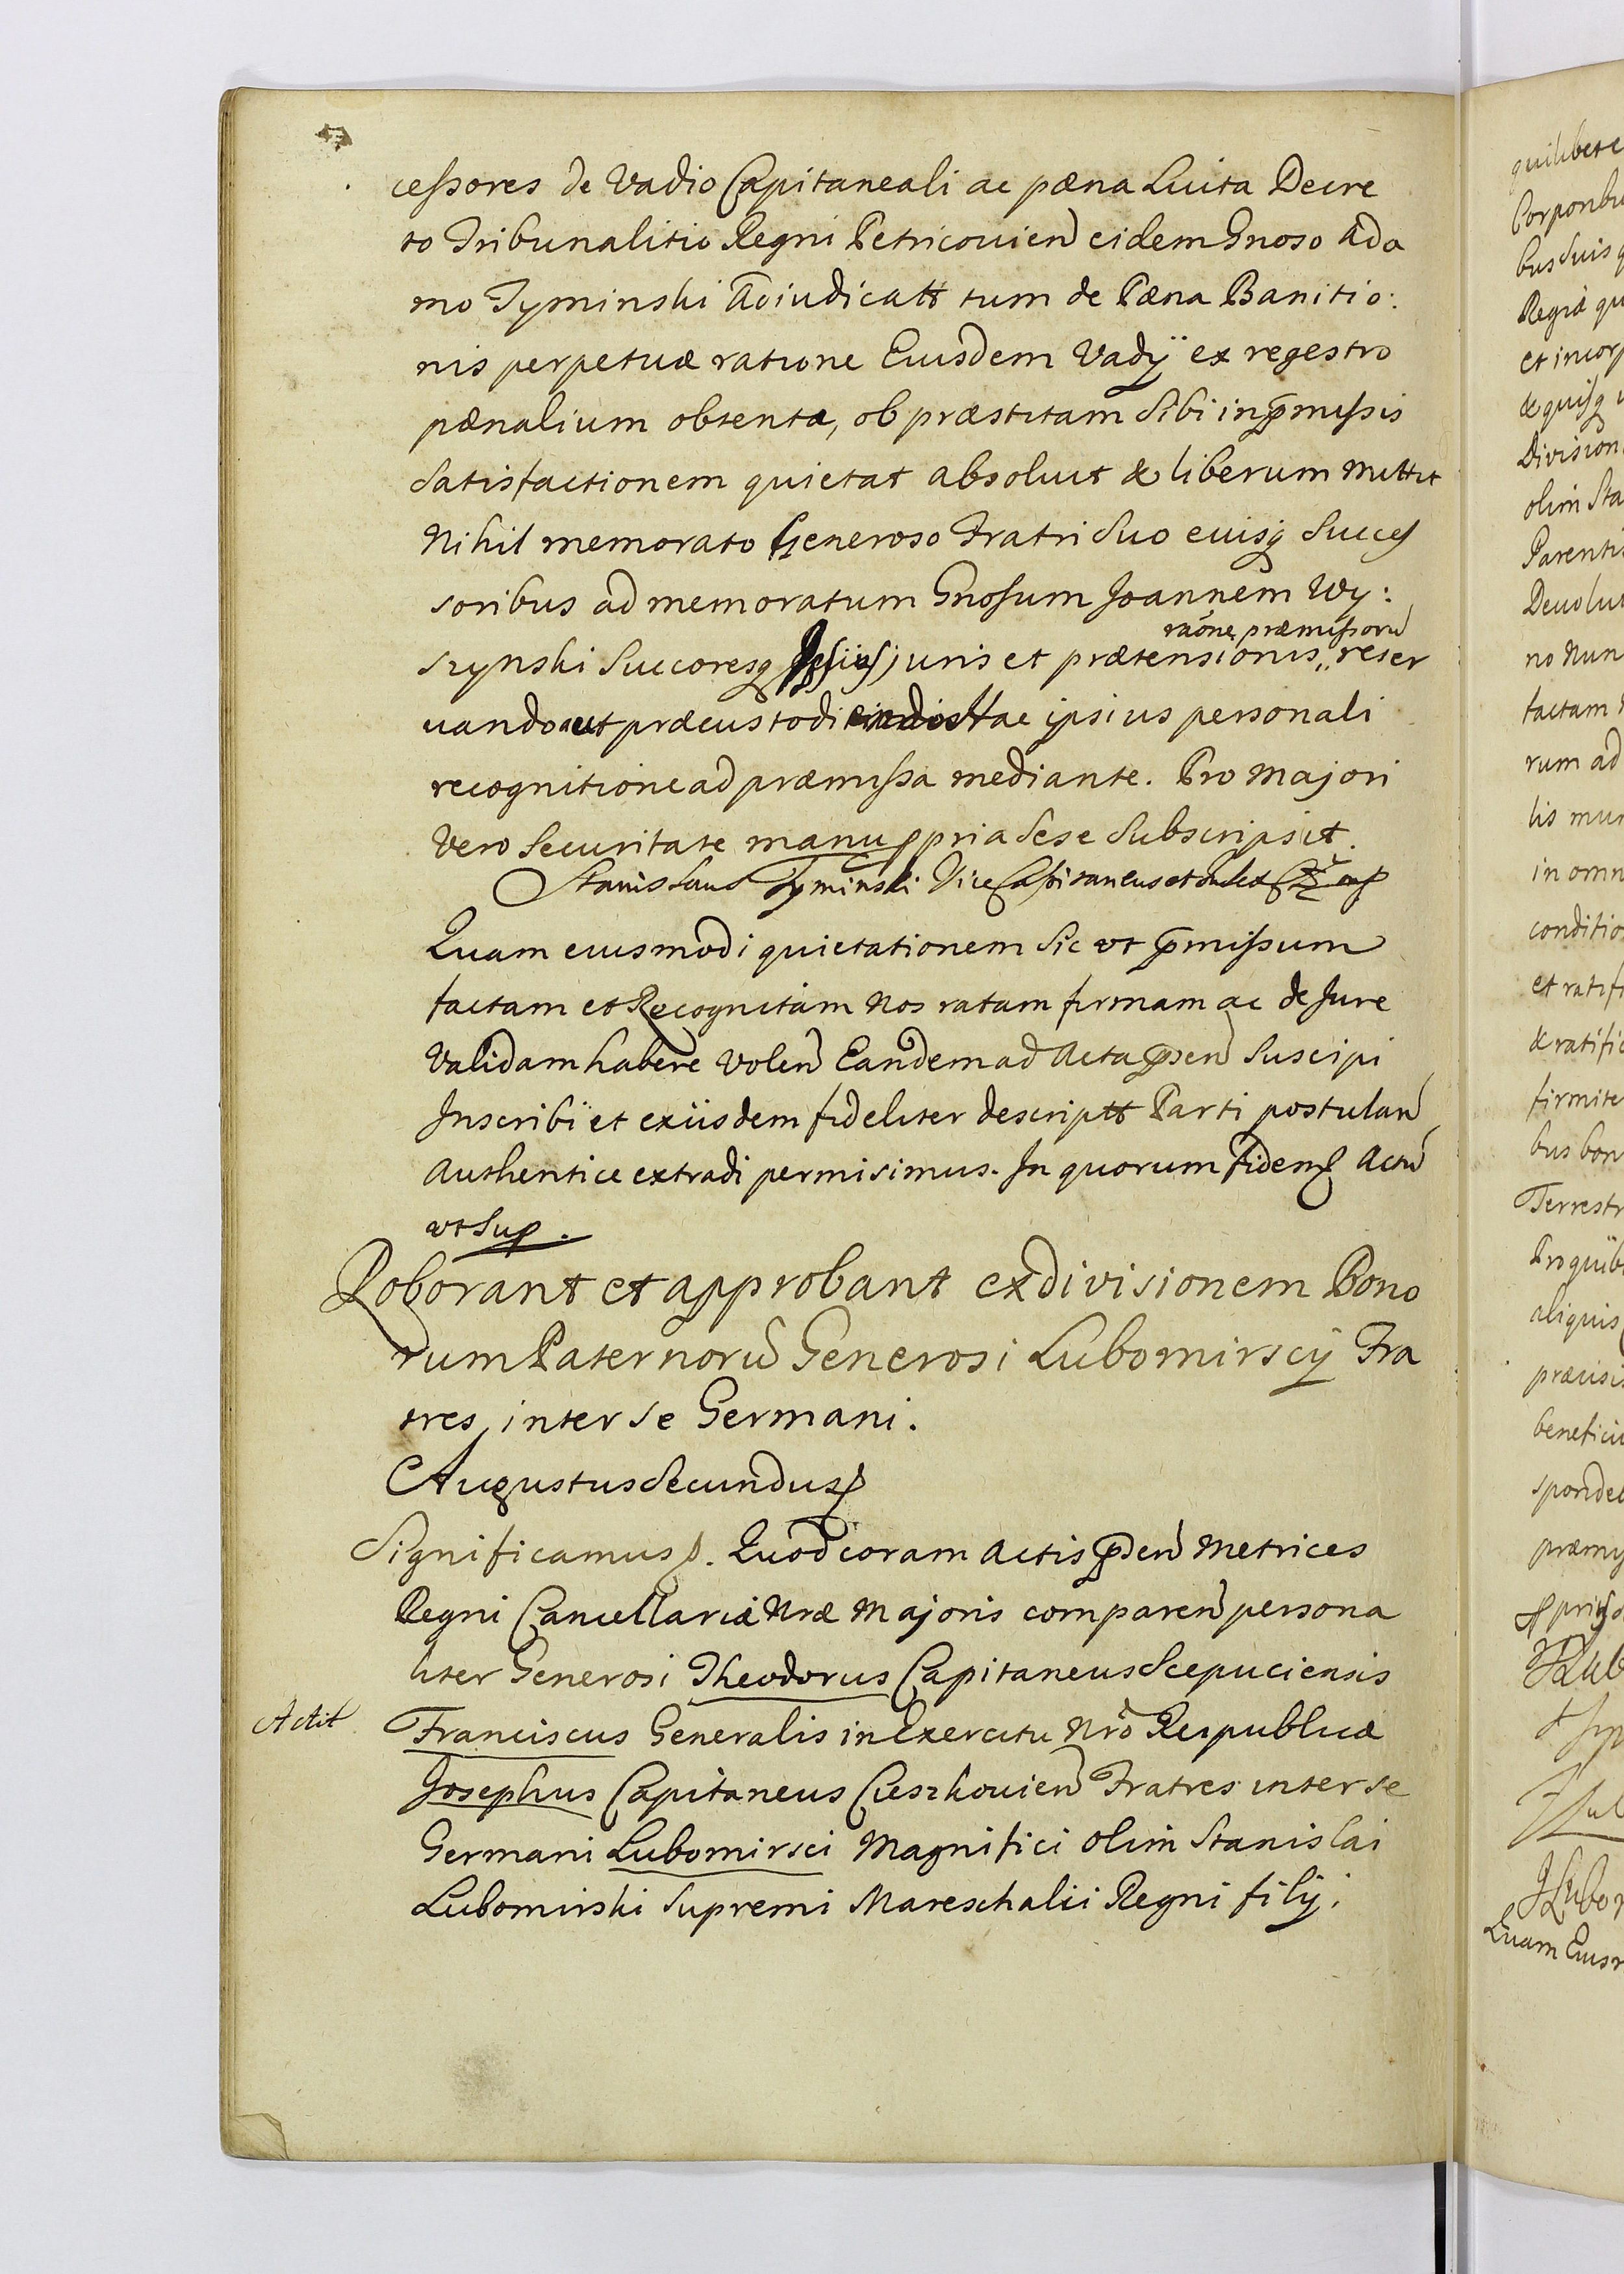 cessores de Vadio Capitaneali ac pæna Luita Decre
to Tribunalitio Regni Petricouien eidem Gnoso Ada
mo Tyminski Adiudicatt tum de Pæna Banitio:
nis perpetuæ ratione Eiusdem Vadÿ ex regestro
pænalium obtenta, ob præstitam Sibi in pmissis
Satisfactionem quietat absoluit & liberum mittit
Nihil memorato Generoso Fratri Suo eiusq Succes
soribus ad memoratum Gnosum Joannem Wy:
raone præmissoru
szynski Succoresq juris et prætensionis,, reser
uando præcustodi ac ipsius personali
recognitione ad præmissa mediante. Pro majori
Vero Securitate manu ppria Sese Subscripsit.
Stanislaus Tyminski ViceCapitaneus et Iudex
Quam eiusmodi quietationem Sic vt pmissum
factam et Recognitam Nos ratam firmam ac de Jure
Validam habere Volen Eandem ad Acta psen Suscipi
Inscribi et exiisdem fideliter descriptt Parti postulan
Authentice extradi permisimus. In quorum fidem Actu
vt Sup.
Roborant et approbant exdivisionem Bono
rum Paternoru Generosi Lubomirscy Fra
tres inter Se Germani.
Augustus Secundus
Significamus. Quod coram Actis psen Metrices
Regni Cancellariæ Nræ Majoris comparen persona
liter Generosi Theodorus Capitaneus Scepuciensis
Actit
Franciscus Generalis in Exercitu Nro Reipublicæ
Josephus Capitaneus Cieszkouien Fratres inter se
Germani Lubomirsci Magnifici olim Stanislai
Lubomirski Supremi Mareschalii Regni filij.
quilibet
bus Suis
Regiæ
Division
olim Sta
no Nun
factam
rum ad
in omn
conditio
et ratifi
& ratific
firmite
bus bon
Terrestr
aliquis
præcisi
benefici
Quam Eius